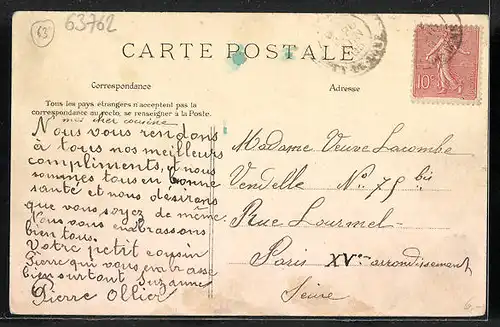 63
63762
CARTE POSTALE
10c
Correspondance
Adresse
Tous les pays étrangers n'acceptent pas la
correspondance au recto, se renseigner à la Poste.
mes cher cousine
Nous vous rendons
à tous nos meilleurs
compliments, et nous
sommes tous en bonne
santé et nous désirons
que vous soyez de même.
Nous vous enabrassons
bien tous.
Votre petit cousin
Pierre qui vous enabrasse
bien surtant Suzanne
Pierre Ollier
Madame Veuve Lacombe
Vendelle No 75 bis
Rue Lourmel-
Paris XVe arrondissement
Seine